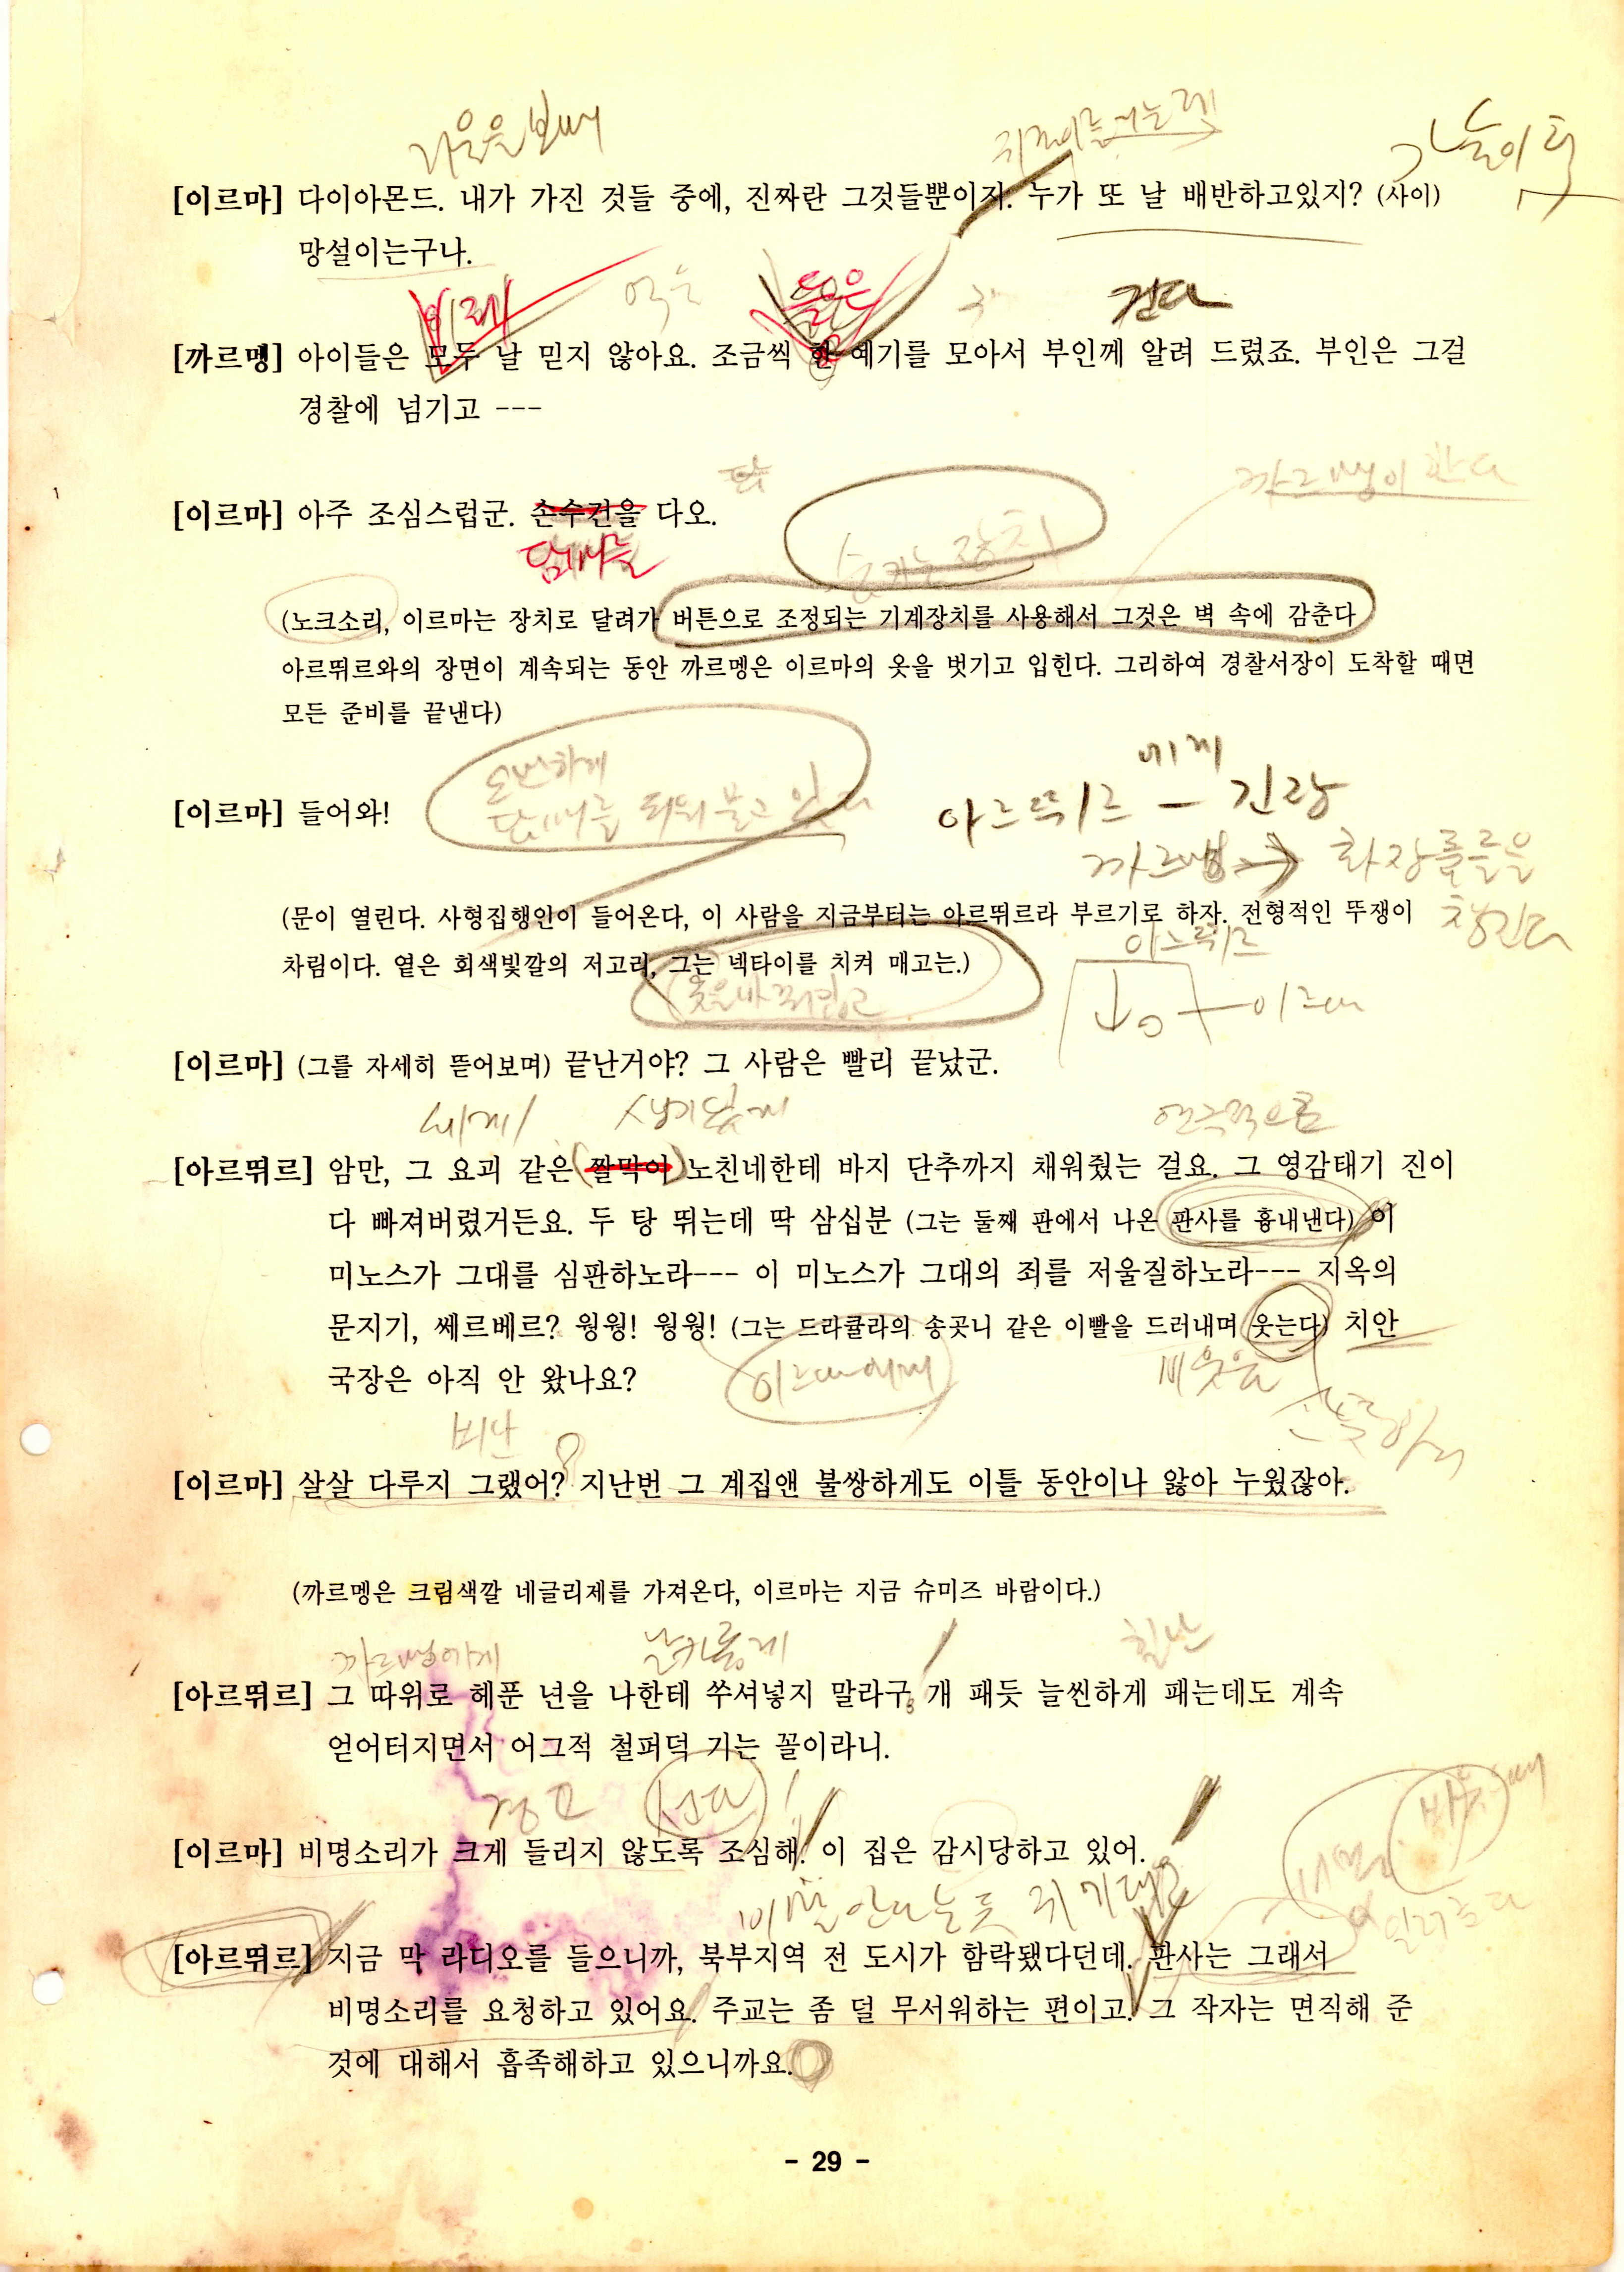 거울을 보며
[이르마] 다이아몬드. 내가 가진 것들 중에, 진짜란 그것들뿐이지. 누가 또 날 배반하고있지? (사이)
망설이는구나.
들은
걷다
[까르멩] 아이들은 모두 날 믿지 않아요. 조금씩 한 예기를 모아서 부인께 알려 드렸죠. 부인은 그걸
경찰에 넘기고 ---
까르멩이 한다
[이르마] 아주 조심스럽군. 손수건을 다오.
담배를
숨기는 장치
(노크소리, 이르마는 장치로 달려가 버튼으로 조정되는 기계장치를 사용해서 그것은 벽 속에 감춘다
아르뛰르와의 장면이 계속되는 동안 까르멩은 이르마의 옷을 벗기고 입힌다. 그리하여 경찰서장이 도착할 때면
모든 준비를 끝낸다)
담배를 피워물고 있다
에게
[이르마] 들어와!
아르뛰르 – 긴장
까르멩 → 화장품을
챙긴다
(문이 열린다. 사형집행인이 들어온다, 이 사람을 지금부터는 아르뛰르라 부르기로 하자. 전형적인 뚜쟁이
아르뛰르
차림이다. 옅은 회색빛깔의 저고리, 그는 넥타이를 치켜 매고는.)
옷을 바꿔입고
이르마
[이르마] (그를 자세히 뜯어보며) 끝난거야? 그 사람은 빨리 끝났군.
세게
연극적으로
[아르뛰르] 암만, 그 요괴 같은 짤막이 노친네한테 바지 단추까지 채워줬는 걸요. 그 영감태기 진이
다 빠져버렸거든요. 두 탕 뛰는데 딱 삼십분 (그는 둘째 판에서 나온 판사를 흉내낸다) 이
미노스가 그대를 심판하노라--- 이 미노스가 그대의 죄를 저울질하노라--- 지옥의
문지기, 쎄르베르? 웡웡! 웡웡! (그는 드라큘라의 송곳니 같은 이빨을 드러내며 웃는다) 치안
국장은 아직 안 왔나요?
이르마에게
비웃음
비난
[이르마] 살살 다루지 그랬어? 지난번 그 계집앤 불쌍하게도 이틀 동안이나 앓아 누웠잖아.
(까르멩은 크림색깔 네글리제를 가져온다, 이르마는 지금 슈미즈 바람이다.)
까르멩에게
날카롭게
힐난
[아르뛰르] 그 따위로 헤푼 년을 나한테 쑤셔넣지 말라구, 개 패듯 늘씬하게 패는데도 계속
얻어터지면서 어그적 철퍼덕 기는 꼴이라니.
경고
선다
[이르마] 비명소리가 크게 들리지 않도록 조심해. 이 집은 감시당하고 있어.
[아르뛰르] 지금 막 라디오를 들으니까, 북부지역 전 도시가 함락됐다던데. 판사는 그래서
비명소리를 요청하고 있어요. 주교는 좀 덜 무서워하는 편이고. 그 작자는 면직해 준
것에 대해서 흡족해하고 있으니까요.
- 29 -